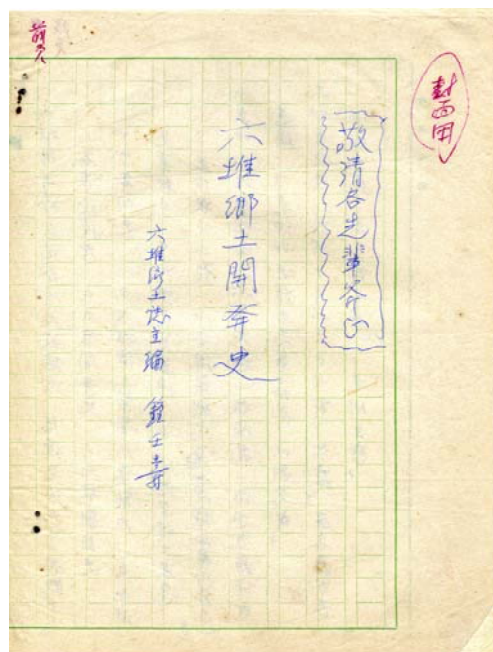 封面用
敬請各先輩斧正
六堆鄉土開奔史
六堆鄉土誌主編 鍾壬壽